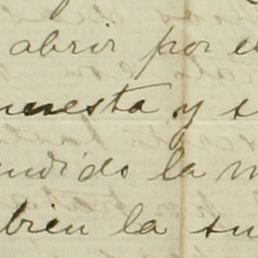 abrir por e
uesta y s
ndido la m
bien la su